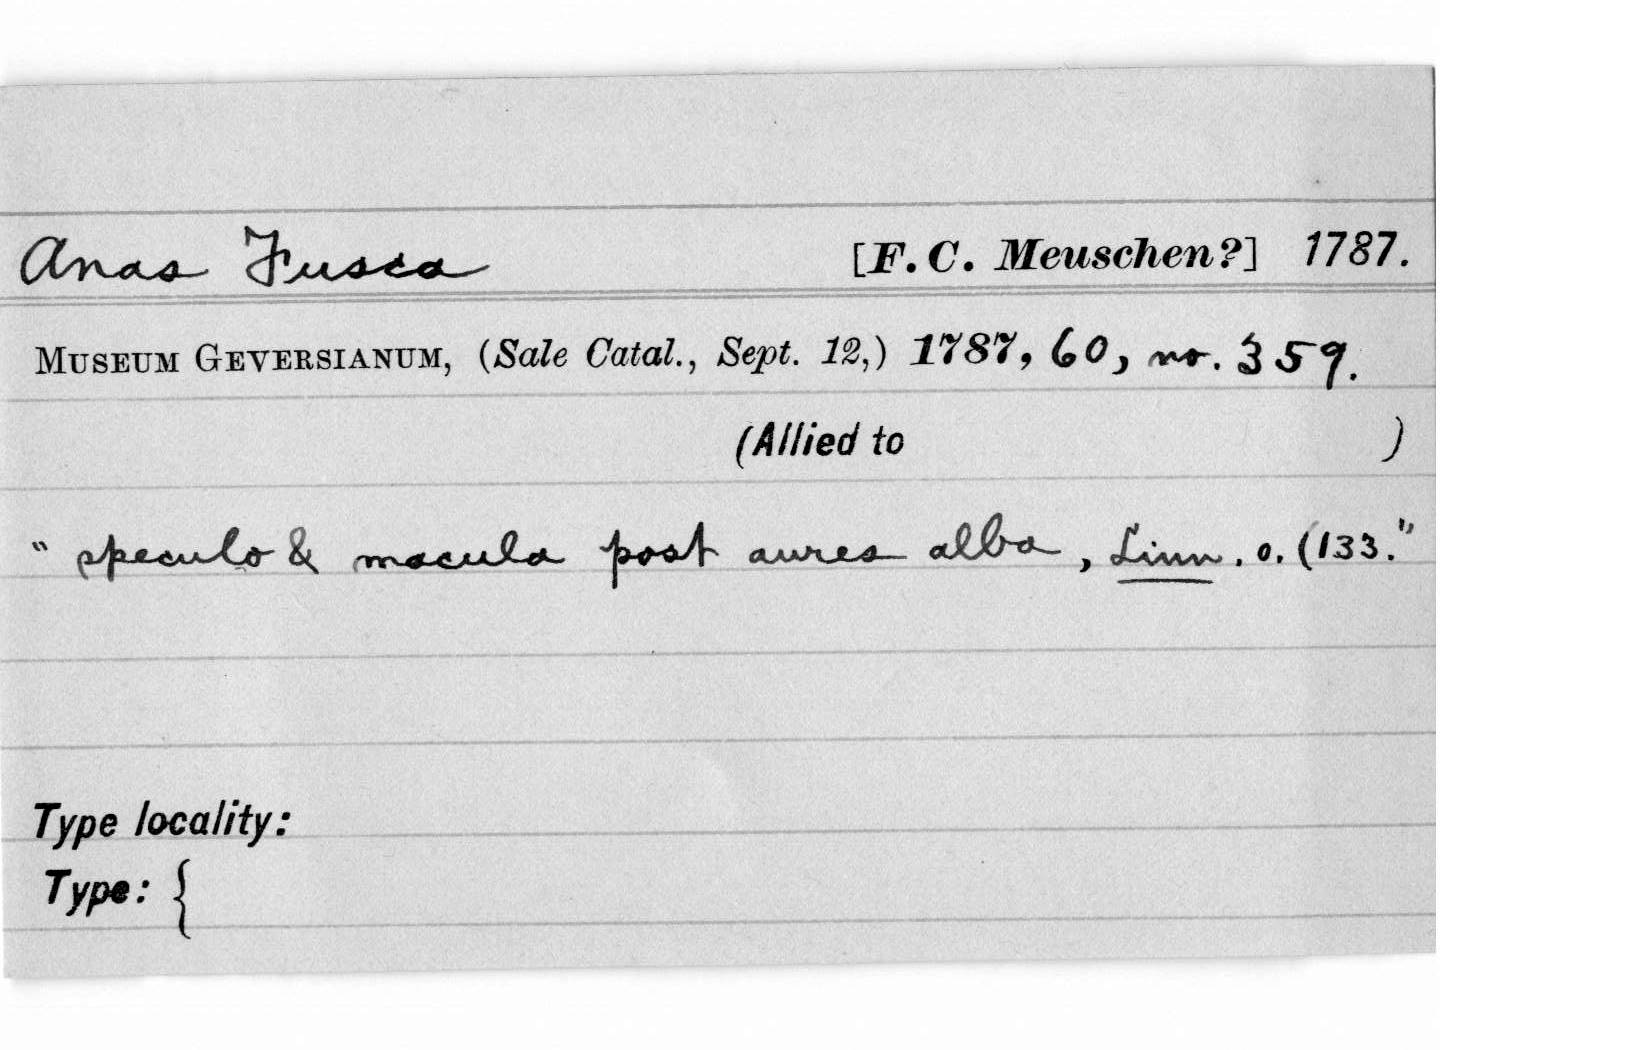 Anas Fusca [F. C. Meuschen?] 1787.
MUSEUM GEVERSIANUM, (Sale Catal., Sept. 12,) 1787, 60, no. 359.
(Allied to )
" speculo & macula post aures alba, Linn. o. (133."
Type locality:
Type: {